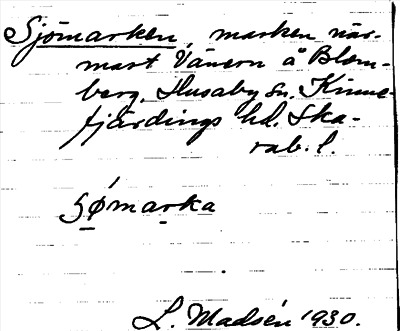 Sjömarken, marken när-
mast Vänern å Blom-
berg, Husaby sn. Kinne-
fjärdings hd. Ska-
rab. l.
sømarka
L. Madsén 1930.